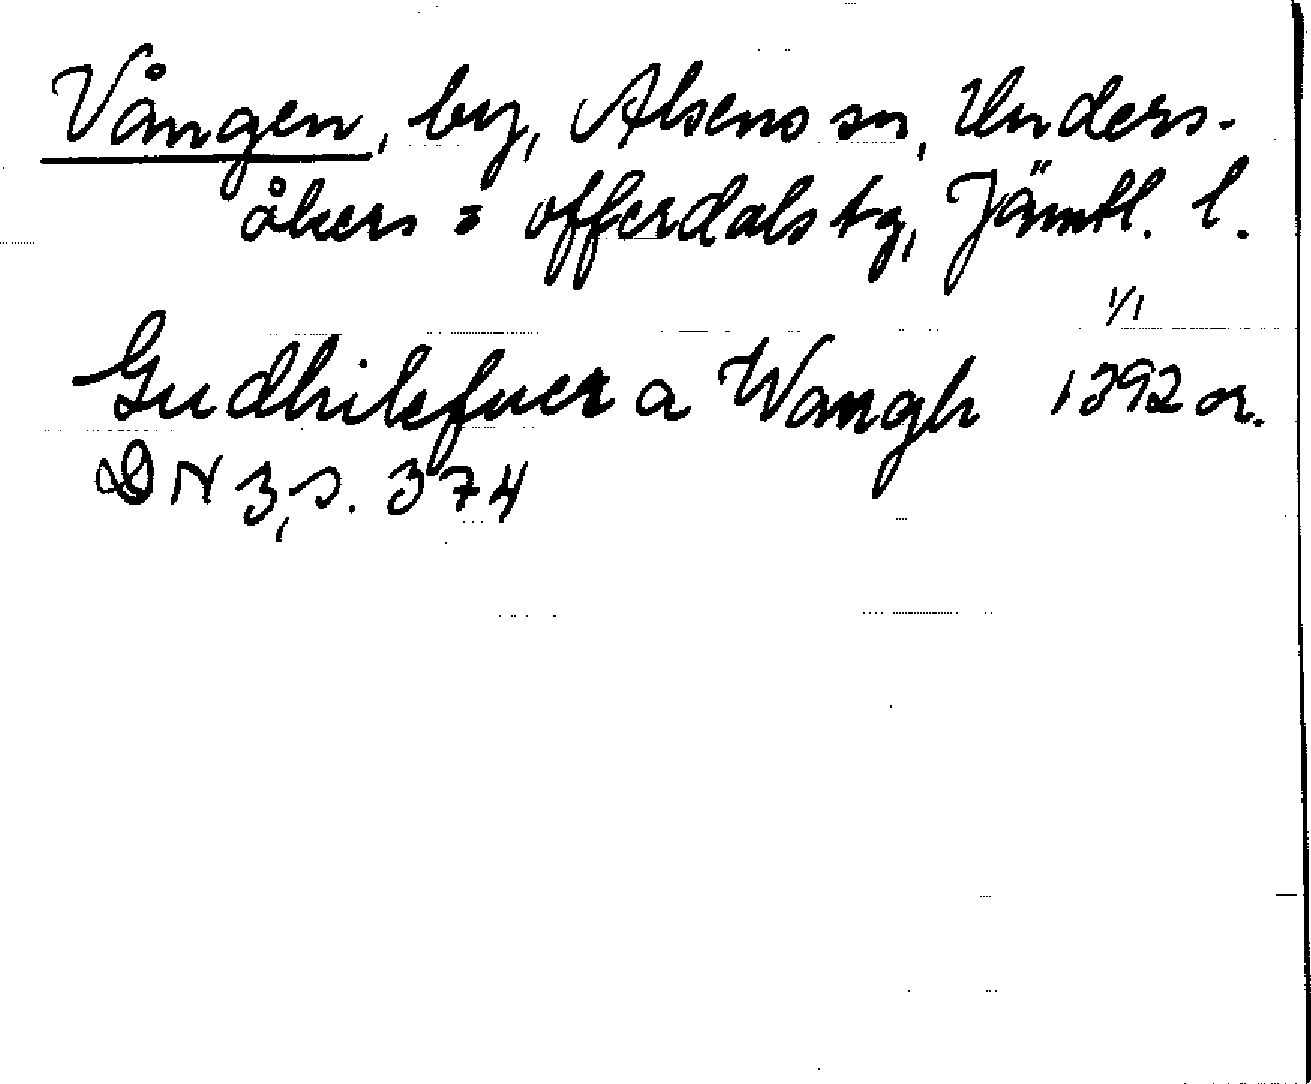 Vången, by, Alsens sn, Unders-
åkers o offerdals tg, Jämtl. l.
1/1
Gudhilefuer a Wangh 1392 or.
DN 3, s. 374